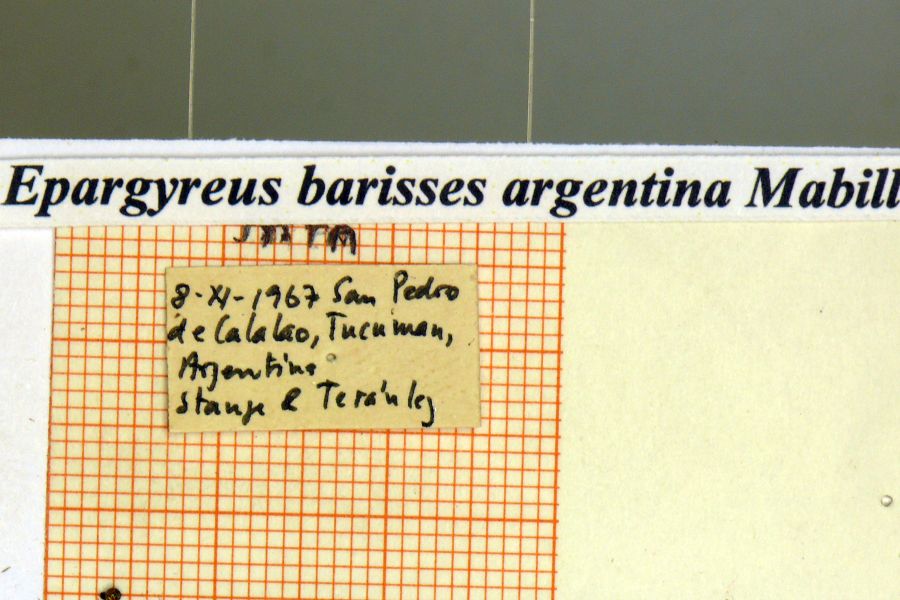 Epargyreus barisses argentina Mabill
mm
8-XI-1967 San Pedro
de Calalao, Tucuman,
Argentina
Stange & Terán leg